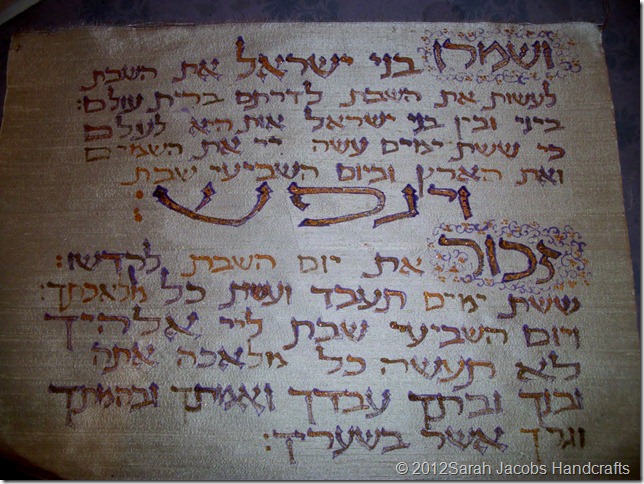 ושמרו בני ישראל את השבת
לעשות את השבת לדרתם ברית עולם:
ביני ובין בני ישראל אות הא לעלם
כי ששת ימים עשה יי את השמים
ואת הארץ וביום השביעי שבת
וינפש:
זכור את יום השבת לקדשו:
ששת ימים תעבד ועשת כל מלאכתך:
ויום השביעי שבת ליי אלהיך
לא תעשה כל מלאכה אתה
ובנך ובתך עבדך ואמתך ובהמתך
וגרך אשר בשעריך:
© 2012Sarah Jacobs Handcrafts